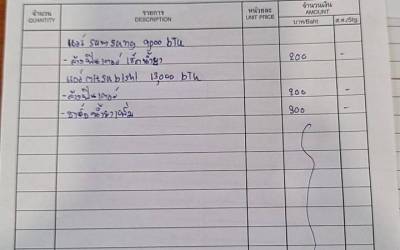 จำนวน QUANTITY รายการ DESCRIPTION หน่วยละ UNIT PRICE จำนวนเงิน AMOUNT
บาท/Baht ส.ต./Stg.
แอร์ Samsung 9000 btu
- ล้างฟิลเตอร์ เช็คน้ำยา ๔๐๐ -
แอร์ mitsubishi 13,000 btu
- ล้างฟิลเตอร์ ๔๐๐ -